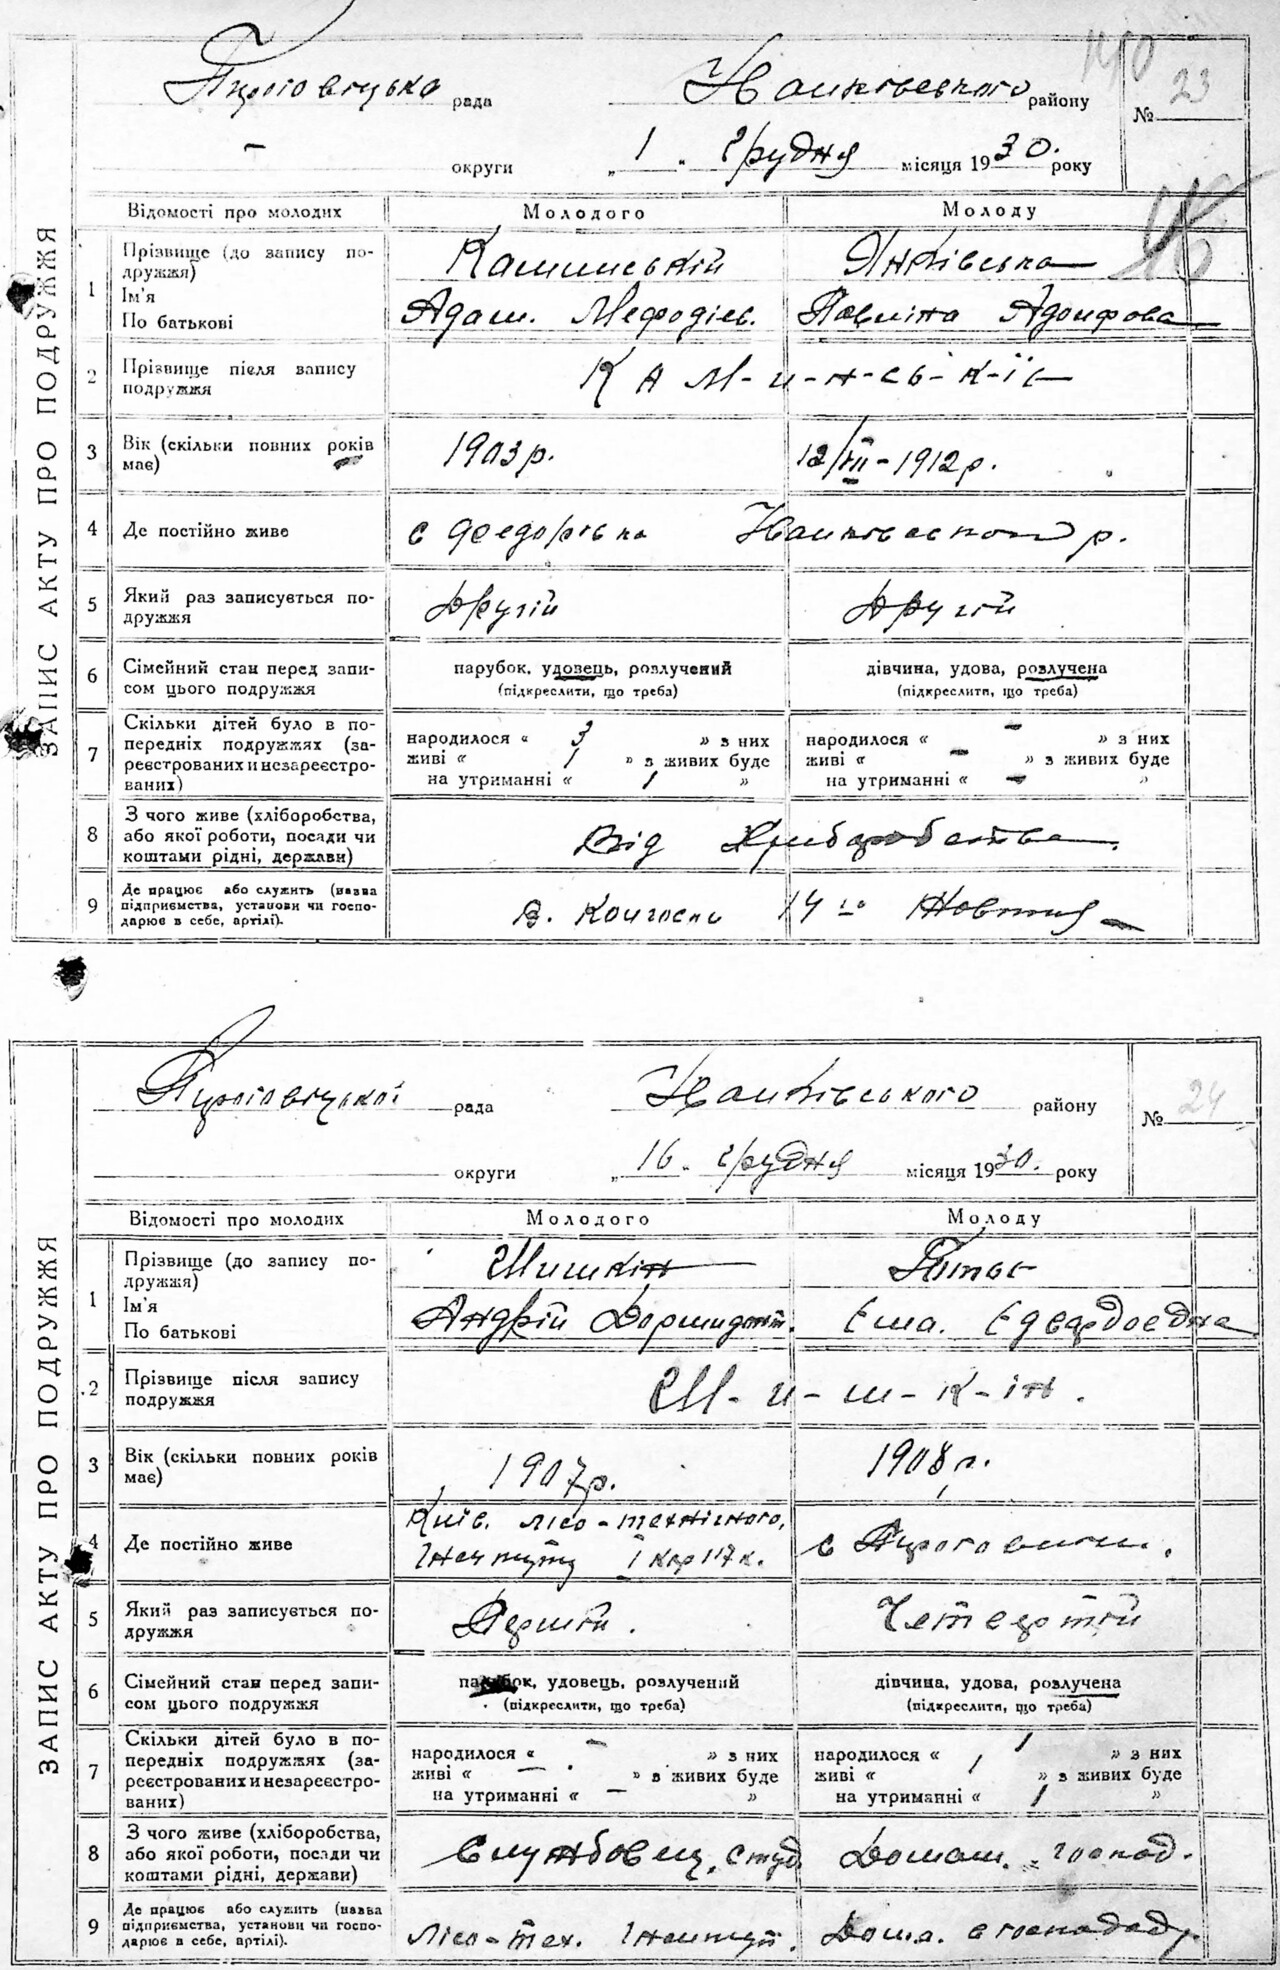 190
Пироговицька рада Іванківського району № 23
— округи „1„ грудня місяця 1930. року
ЗАПИС АКТУ ПРО ПОДРУЖЖЯ
Відомості про молодих Молодого Молоду
1 Прізвище (до запису по-
дружжя) Каминський Янківська
Ім'я
По батькові Адам. Мефодієв. Павліна Адольфова
2 Прізвище після запису
подружжя К А М-и-н-сь-к-ії
3 Вік (скільки повних років
має) 1903 р. 12/VII-1912 р.
4 Де постійно живе с Федорівка р.
5 Який раз записується по-
дружжя другій другій
6 Сімейний стан перед запи-
сом цього подружжя
парубок, удовець, розлучений
(підкреслити, що треба)
дівчина, удова, розлучена
(підкреслити, що треба)
7 Скільки дітей було в по-
передніх подружжях (за-
реєстрованих и незареєстро-
ваних)
народилося « 3 » з них
живі « 1 » з живих буде
на утриманні « 1 »
народилося « — » з них
живі « — » з живих буде
на утриманні « — »
8 З чого живе (хліборобства,
або якої роботи, посади чи
коштами рідні, держави)
Від Хліборобства.
9 Де працює або служить (назва
підприємства, установи чи госпо-
дарює в себе, артілі).
В. Колгоспі 14 го Жовтня
рада Іванківського району № 24
округи „16„ грудня місяця 1930. року
ЗАПИС АКТУ ПРО ПОДРУЖЖЯ
Відомості про молодих Молодого Молоду
1 Прізвище (до запису по-
дружжя) Шишкін
Ім'я
По батькові Андрій Дормидонт. Ема. Едвардовна
2 Прізвище після запису
подружжя Ш-и-ш-к-ін.
3 Вік (скільки повних років
має) 1907 р. 1908 р.
4 Де постійно живе Київ. лісо-технічного,
Інституту 1 кор 117 к. с
5 Який раз записується по-
дружжя Перший. Четвертий
6 Сімейний стан перед запи-
сом цього подружжя
парубок, удовець, розлучений
(підкреслити, що треба)
дівчина, удова, розлучена
(підкреслити, що треба)
7 Скільки дітей було в по-
передніх подружжях (за-
реєстрованих и незареєстро-
ваних)
народилося « — » з них
живі « — » з живих буде
на утриманні « — »
народилося « 1 » з них
живі « 1 » з живих буде
на утриманні « 1 »
8 З чого живе (хліборобства,
або якої роботи, посади чи
коштами рідні, держави)
Службовец, студ Домаш. господ.
9 Де працює або служить (назва
підприємства, установи чи госпо-
дарює в себе, артілі).
лісо-тех. Інститут. Дома.